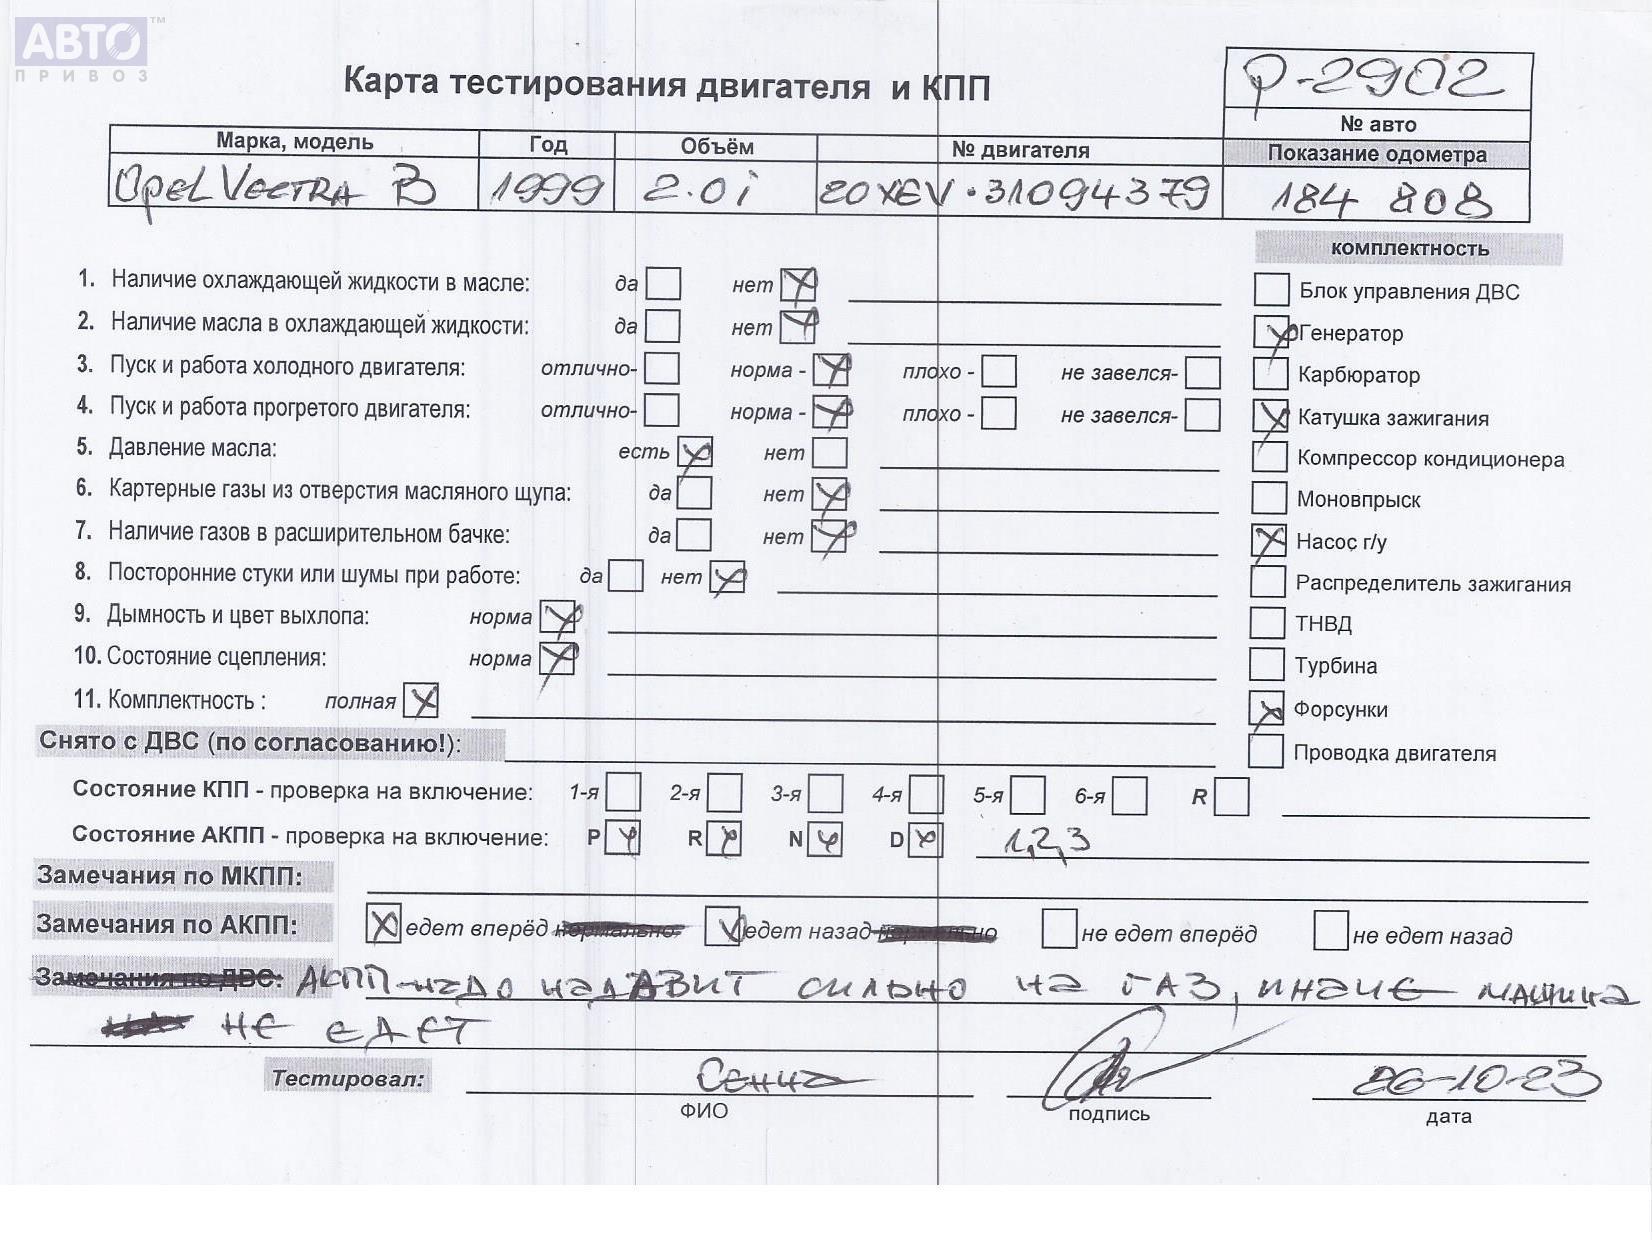 АВТО™
ПРИВОЗ
Карта тестирования двигателя и КПП
φ-2902
№ авто
Марка, модель Год Объём № двигателя Показание одометра
Opel Vectra B 1999 2.0i 20XEV·31094379 184 808
комплектность
1. Наличие охлаждающей жидкости в масле: да нет
Блок управления ДВС
2. Наличие масла в охлаждающей жидкости: да нет
Генератор
3. Пуск и работа холодного двигателя: отлично- норма - плохо - не завелся-
Карбюратор
4. Пуск и работа прогретого двигателя: отлично- норма - плохо - не завелся-
Катушка зажигания
5. Давление масла: есть нет
Компрессор кондиционера
6. Картерные газы из отверстия масляного щупа: да нет
Моновпрыск
7. Наличие газов в расширительном бачке: да нет
Насос г/у
8. Посторонние стуки или шумы при работе: да нет
Распределитель зажигания
9. Дымность и цвет выхлопа: норма
ТНВД
10. Состояние сцепления: норма
Турбина
11. Комплектность : полная
Форсунки
Снято с ДВС (по согласованию!):
Проводка двигателя
Состояние КПП - проверка на включение: 1-я 2-я 3-я 4-я 5-я 6-я R
Состояние АКПП - проверка на включение: P R N D 1,2,3
Замечания по МКПП:
Замечания по АКПП: едет вперёд нормально едет назад нормально не едет вперёд не едет назад
Замечания по ДВС: АКПП-надо надавит сильно на газ, иначе машина
не едет
Тестировал: Сенча 26-10-23
ФИО подпись дата